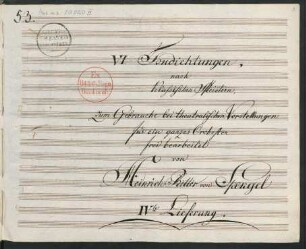 53.
VI Tondichtungen.
nach
klassischen Meistern,
zum Gebrauche bei theatralischen Vorstellungen
für ein ganzes Orchester
frei bearbeitet
von
Heinrich von Spengel
IVte Lieferung.